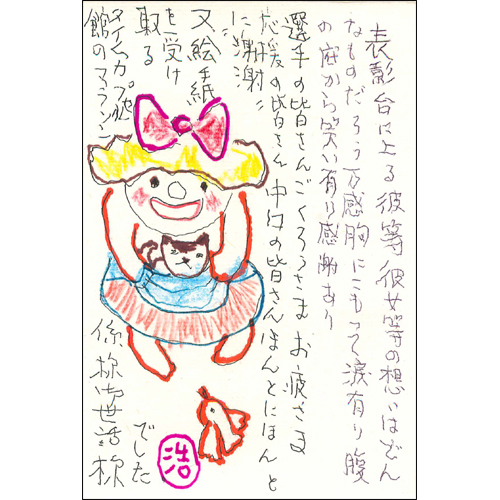 表彰台に上る彼等彼女等の想いはどん
なものだろう万感胸にこもって涙有り腹
の底から笑い有り感謝あり
選手の皆さんごくろうさまお疲さま
応援の皆さん の皆さんほんとにほんと
に謝謝!!
又絵手紙
を受け
取る
タイムカプ
館のマラソン
係様御世話様
でした
浩